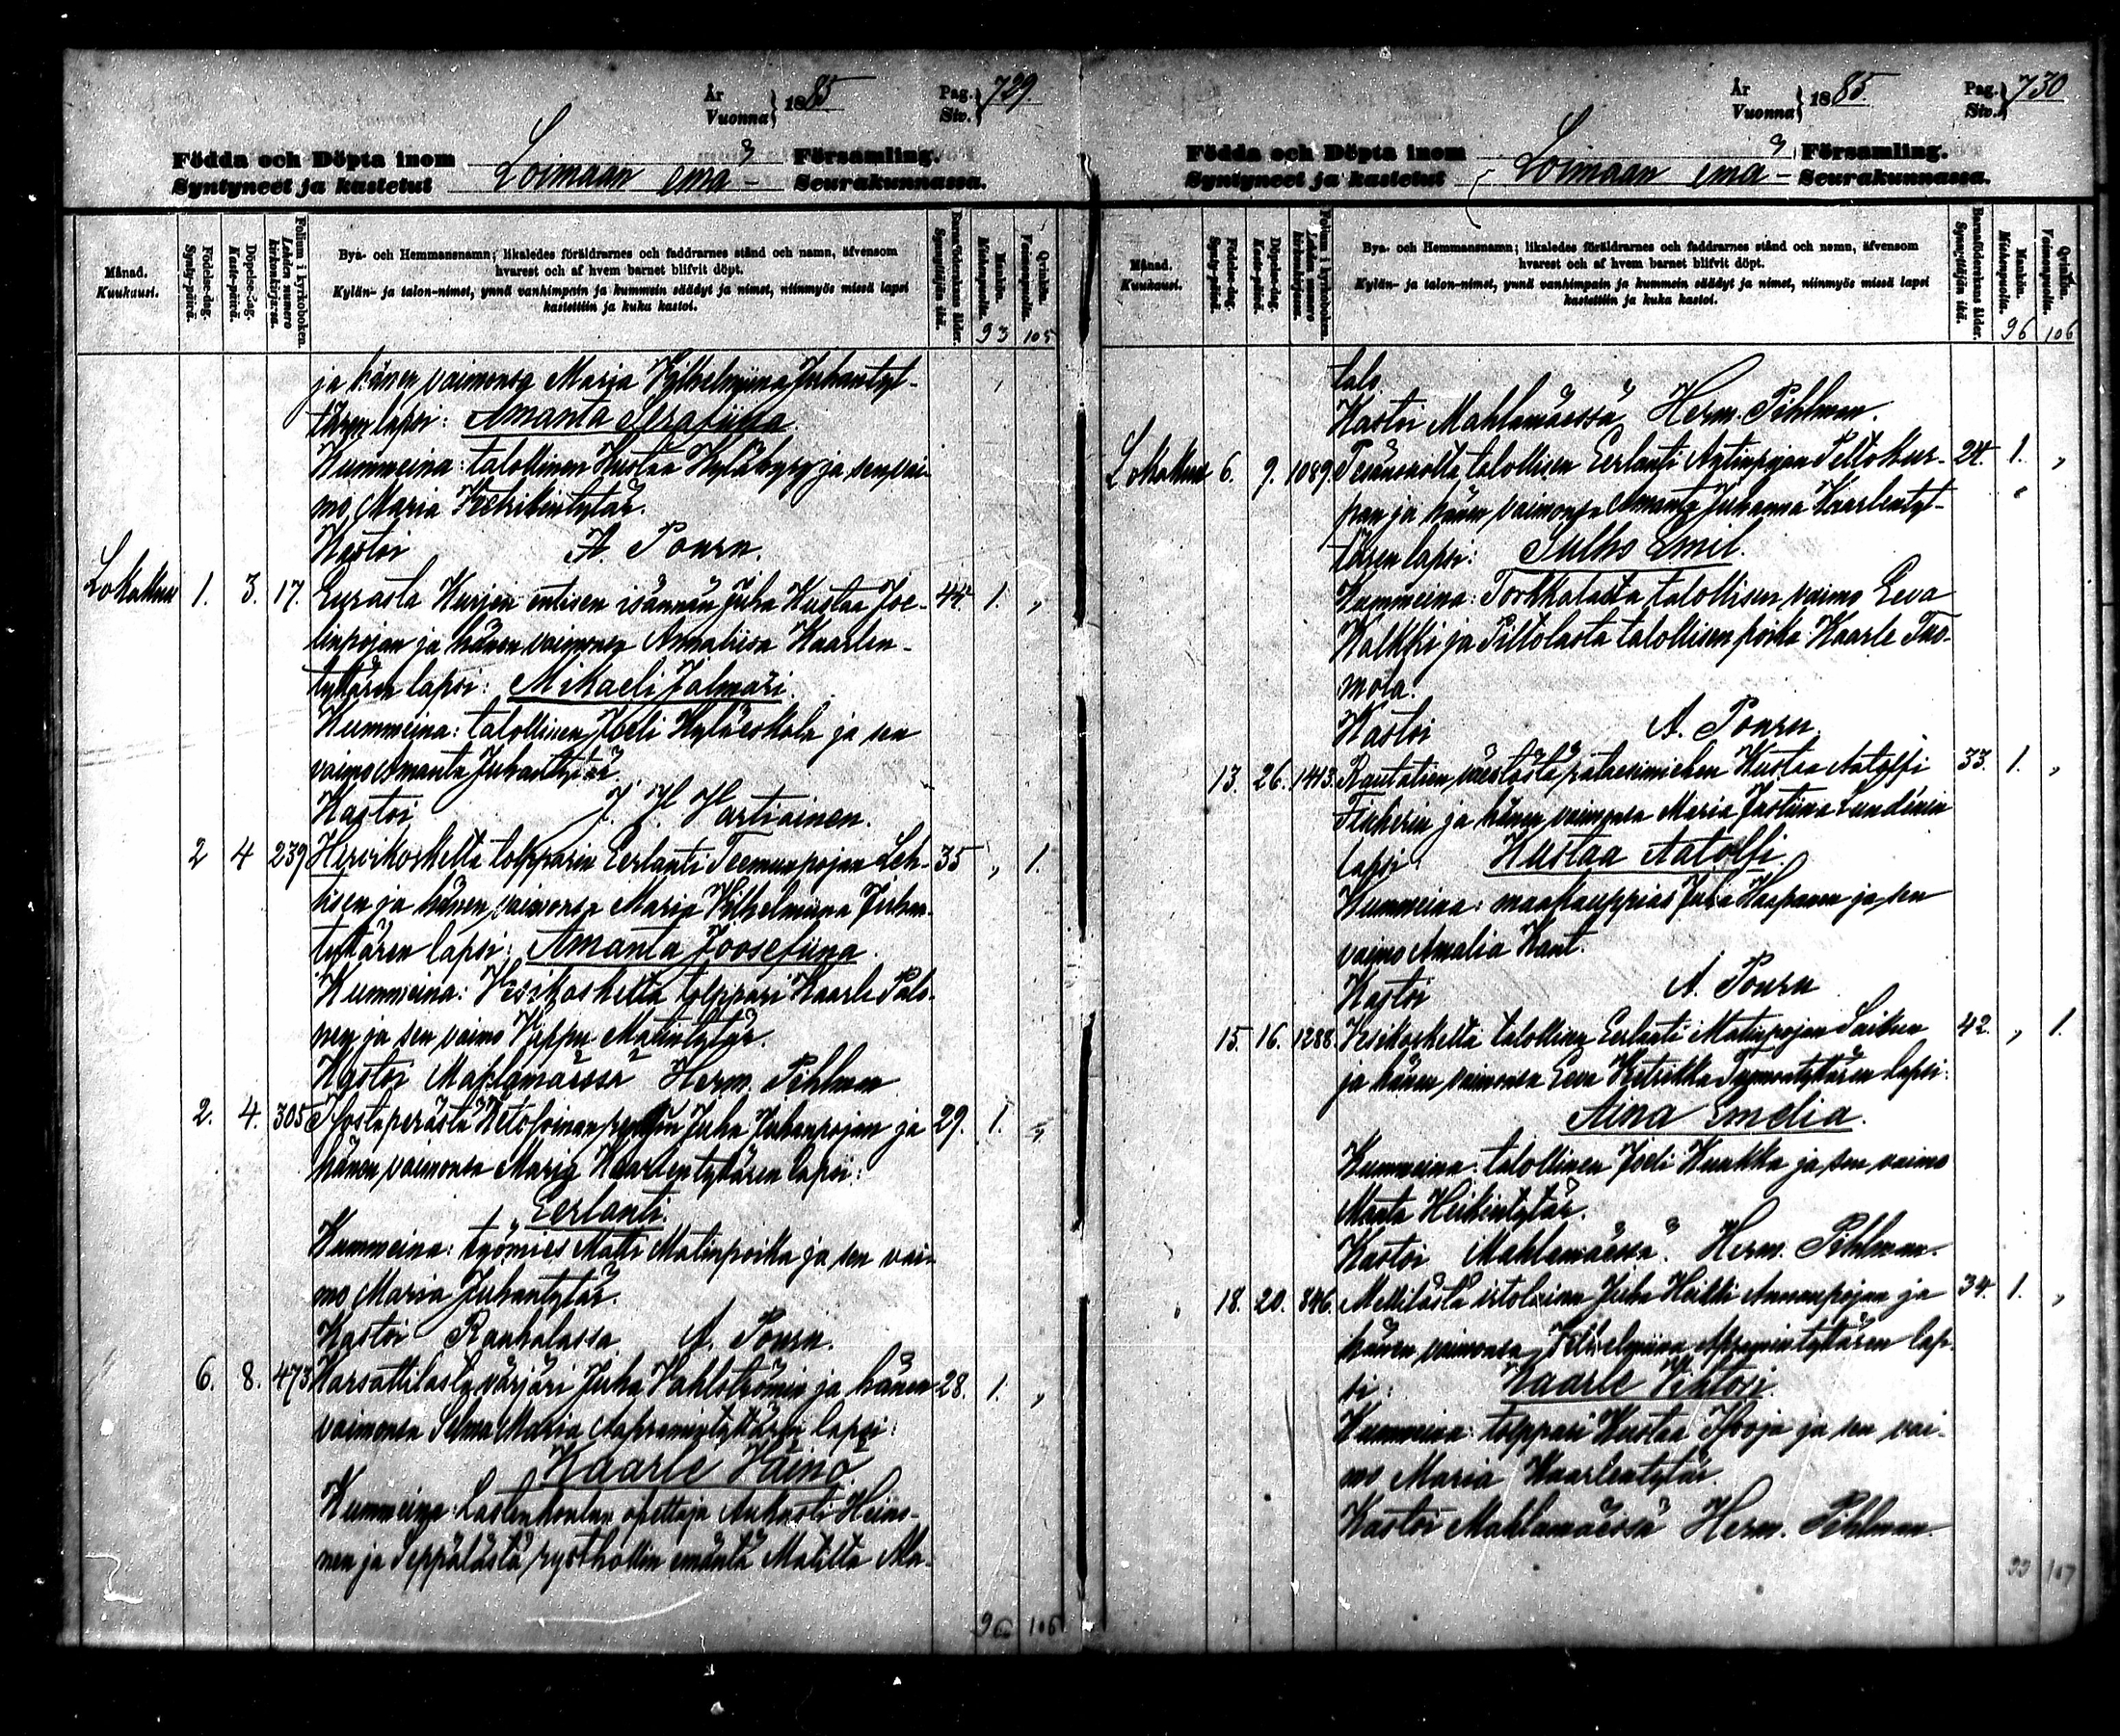 År
Vuonna } 1885
Pag.
Siv. } 729.
Födda och Döpta inom
Syntyneet ja kastetut
Loimaan emä-
Församling.
Seurakunnassa.
Månad.
Kuukausi.
Födelse-dag.
Synty-päivä.
Döpelse-dag.
Kaste-päivä.
Folium i kyrkoboken.
Lehden numero kirkonkirjassa.
Bya- och Hemmansnamn; likaledes föräldrarnes och faddrarnes stånd och namn, äfvensom
hvarest och af hvem barnet blifvit döpt.
Kylän- ja talon-nimet, ynnä vanhimpain ja kummein säädyt ja nimet, niinmyös missä lapsi
kastettiin ja kuka kastoi.
Barnaföderskans ålder.
Synnyttäjän ikä.
Mankön.
Miehenpuolia.
93
Qvinkön.
Vaimonpuolia.
105
ja hänen vaimonsa Maria Vilhelmiina Juhantyt-
tären lapsi: Amanta Serafiina.
Kummeina: talollinen Kustaa Kyläkyyy ja sen vai-
mo Maria Fredrikintytär.
Kastoi A. Pouru.
Lokakuu 1. 3. 17. Eurasla Kurjen entisen isännän Juha Kustaa Joe- 44. 1. „
linpojan ja hänen vaimonsa Annaliisa Kaarlen-
tyttären lapsi: Mikaeli Jalmari.
Kummeina: talollinen Joeli Kyläeskola ja sen
vaimo Amanta Juhantytär.
Kastoi J. H. Vartiainen.
2 4 239 Hirvikoskelta torppari Eerlanti Teemunpojan Leh- 35 „ 1.
tisen ja hänen vaimonsa Maria Vilhelmiina Juhan-
tyttären lapsi: Amanta Joosefiina.
Kummeina: Vesikoskelta torppari Kaarle Palo-
nen ja sen vaimo Vappu Matintytär.
Kastoi Mahlamäessä Herm. Pihlman
2. 4. 305 Ilostaperästä itsloinen Juha Juhanpojan ja 29. 1. „
hänen vaimonsa Maria Kaarlentyttären lapsi:
Eerlanti.
Kummeina: työmies Matti Matinpoika ja sen vai-
mo Maria Juhantytär.
Kastoi Rauhalassa. A. Pouru.
6. 8. 473 Karsattilasta värjäri Juha Vahlströmin ja hänen 28. 1. „
vaimonsa Selma Maria Aapramintyttären lapsi:
Kaarle Väinö.
Kummeina: Lastenkoulun opettaja Aukusti Heino-
nen ja Seppälästä rusthollin emäntä Matilta Ala-
96 106
År
Vuonna } 1885
Pag.
Siv. } 730
Födda och Döpta inom
Syntyneet ja kastetut
Loimaan emä-
Församling.
Seurakunnassa.
Månad.
Kuukausi.
Födelse-dag.
Synty-päivä.
Döpelse-dag.
Kaste-päivä.
Folium i kyrkoboken.
Lehden numero kirkonkirjassa.
Bya- och Hemmansnamn; likaledes föräldrarnes och faddrarnes stånd och namn, äfvensom
hvarest och af hvem barnet blifvit döpt.
Kylän- ja talon-nimet, ynnä vanhimpain ja kummein säädyt ja nimet, niinmyös missä lapsi
kastettiin ja kuka kastoi.
Barnaföderskans ålder.
Synnyttäjän ikä.
Mankön.
Miehenpuolia.
96
Qvinkön.
Vaimonpuolia.
106
talo.
Kastoi Mahlamäessä Herm. Pihlman.
Lokakuu 6. 9. 1089. talollisen Eerlanti Peltokur- 24. 1. „
pan ja hänen vaimonsa Amanta Juhanna Kaarlentyt-
tären lapsi: Julho Emil.
Kummeina: Torkkalasta talollisen vaimo Eeva
Kalkki ja Piltolasta talollisen poika Kaarle Tuo-
mola.
Kastoi A. Pouru.
13. 26. 1413. Rautatien Kustaa Aatolfi 33. 1. „
ja hänen vaimonsa Maria Justiina Lundénin
lapsi: Kustaa Aatolfi.
Kummeina: maakauppias Juha Haapanen ja sen
vaimo Amalia Kant.
Kastoi A. Pouru
15. 16. 1288. Vesikoskelta talollinen Eerlanti Matinpojan Saiken 42. „ 1.
ja hänen vaimonsa Eeva Ketrikka Tuomontyttären lapsi:
Aina Emelia.
Kummeina: talollinen Joeli Kuukka ja sen vaimo
Manta Heikintytär.
Kastoi Mahlamäessä. Herm. Pihlman.
18. 20. 846. Mellilästä itsloinen Juha Heikki Annanpojan ja 34. 1. „
hänen vaimonsa Vilhelmiina Aapramintyttären lap-
si: Kaarle Vihtori
Kummeina: torppari Kustaa Ilvoja ja sen vai-
mo Maria Kaarlentytär.
Kastoi Mahlamäessä Herm. Pihlman
99 107